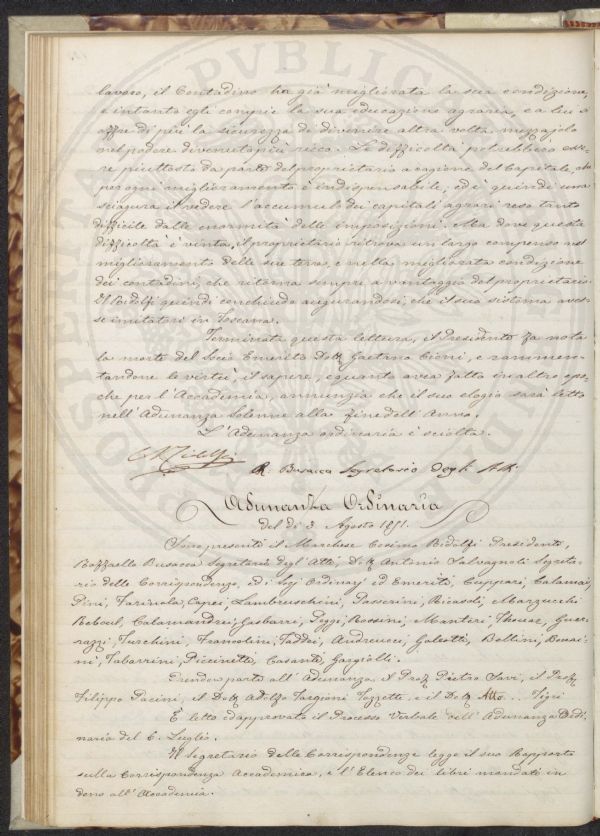 lavoro, il Contadino ha già migliorata la sua condizione,
e intanto egli compiè la sua educazione agraria, e a lui si
offre di più la sicurezza di divenire altra volta mezzajolo
nel podere divenuto più ricco. Le difficoltà potrebbero esse-
re piuttosto da parte del proprietario a cagione del Capitale, che
per ogni miglioramento è indispensabile, ed è quindi una
sciagura il vedere l'accumulo dei capitali agrari reso tanto
difficile dalle enormità delle imposizioni. Ma dove questa
difficoltà è vinta, il proprietario ritrova un largo compenso nel
miglioramento delle sue terre, e nella migliorata condizione
dei contadini, che ritorna sempre a vantaggio del proprietario.
Il Ridolfi quindi conchiude augurandosi, che il suo sistema aves-
se imitatori in Toscana.
Terminata questa lettura, il Presidente fa nota
la morte del Socio Emerito Dott. Gaetano Cioni, e rammen-
tandone le virtù, il sapere, e quanto avea fatto in altre epo-
che per l'Accademia, annunzia che il suo elogio sarà letto
nell'Adunanza Solenne alla fine dell'Anno.
L'Adunanza ordinaria è sciolta.
C. Ridolfi
R. Busacca Segretario degli Atti
Adunanza Ordinaria
del dì 3 Agosto 1851.
Sono presenti il Marchese Cosimo Ridolfi Presidente,
Raffaello Busacca Segretario degl'Atti, Dott. Antonio Salvagnoli Segreta-
rio delle Corrispondenze, ed i Sigi Ordinarj ed Emeriti, Cuppari, Calamai,
Pini, Farinola, Capei, Lambruschini, Passerini, Ricasoli, Marzucchi
Reboul, Calamandrei, Gasbarri, Poggi, Rossini, Manteri, Thouar, Guer-
razzi, Turchini, Francolini, Taddei, Andreucci, Galeotti, Bellini,
Tabarrini, Piccinetti, Casanti, Gargiolli.
Prendon parte all'Adunanza il Prof. Pietro Savi, il Prof.
Filippo Pacini, il Dott. Adolfo Targioni Tozzetti, e il Dott. Atto... Tigri
È letto ed approvato il Processo Verbale dell'Adunanza Ordi-
naria del 6. Luglio.
Il Segretario delle Corrispondenze legge il suo Rapporto
sulla Corrispondenza Accademica, e l'Elenco dei libri mandati in
dono all'Accademia.